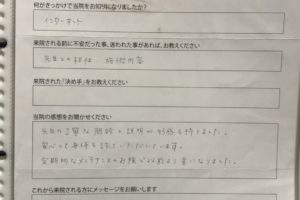 何がきっかけで当院をお知りになりましたか？
インターネット
来院される前に不安だった事、迷われた事があれば、お教えください
先生との相性、施術内容
来院された「決め手」をお教えください
当院の感想をお聞かせください
先生の丁寧な問診と説明に好感を持てました。
安心してお体を託していただいています。
定期的なメンテナンスのお陰で以前より楽になりました。
これから来院される方にメッセージをお願いします